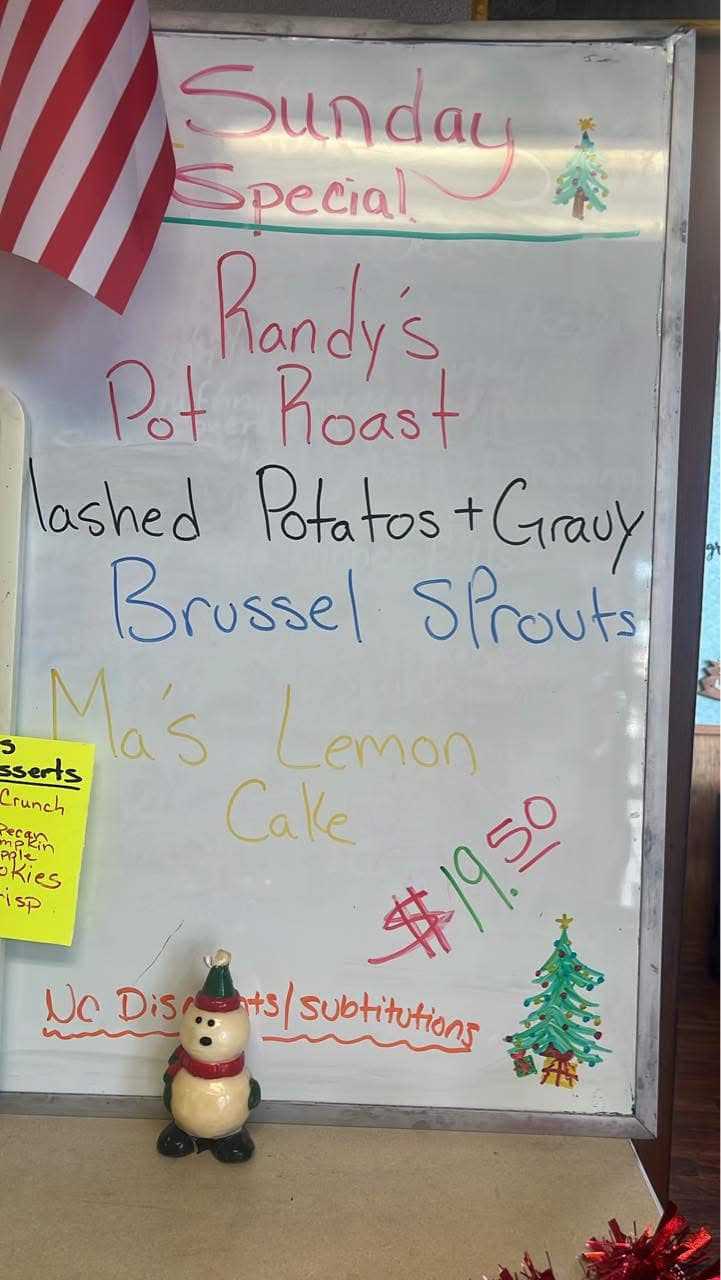 Sunday
Special
Randy's
Pot Roast
lashed Potatos + Gravy
Brussel Sprouts
Ma's Lemon
Cake
$19.50
No Dis ts/subtitutions
s
sserts
Crunch
Pecan
mpkin
pple
okies
risp